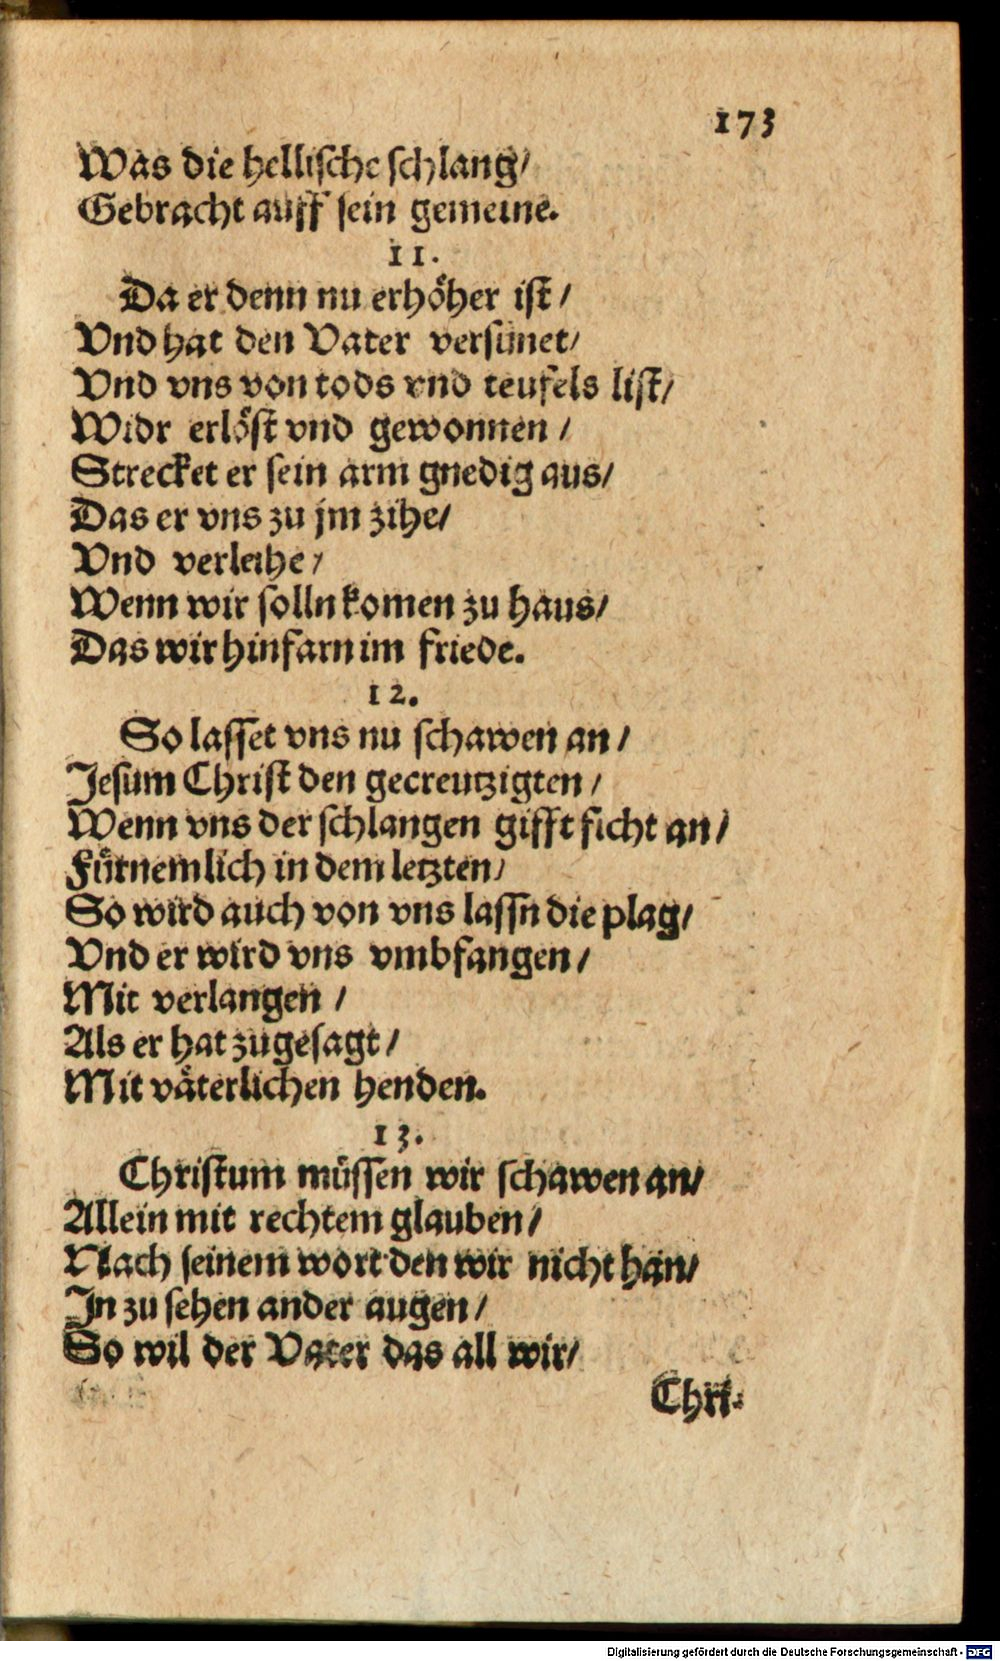 173
Was die hellische schlang/
Gebracht auff sein gemeine.
11.
Da er denn nu erhöher ist/
Vnd hat den Vater versünet/
Vnd vns von tods vnd teufels list/
Widr erlöst vnd gewonnen/
Strecket er sein arm gnedig aus/
Das er vns zu jm zihe/
Vnd verleihe/
Wenn wir solln komen zu haus/
Das wir hinfarn im friede.
12.
So lasset vns nu schawen an/
Jesum Christ den gecreutzigten/
Wenn vns der schlangen gifft ficht an/
Fürnemlich in dem letzten/
So wird auch von vns lassn die plag/
Vnd er wird vns vmbfangen/
Mit verlangen/
Als er hat zugesagt/
Mit väterlichen henden.
13.
Christum müssen wir schawen an/
Allein mit rechtem glauben/
Nach seinem wort den wir nicht han/
Jn zu sehen ander augen/
So wil der Vater das all wir/
Chri-
Digitalisierung gefördert durch die Deutsche Forschungsgemeinschaft - DFG